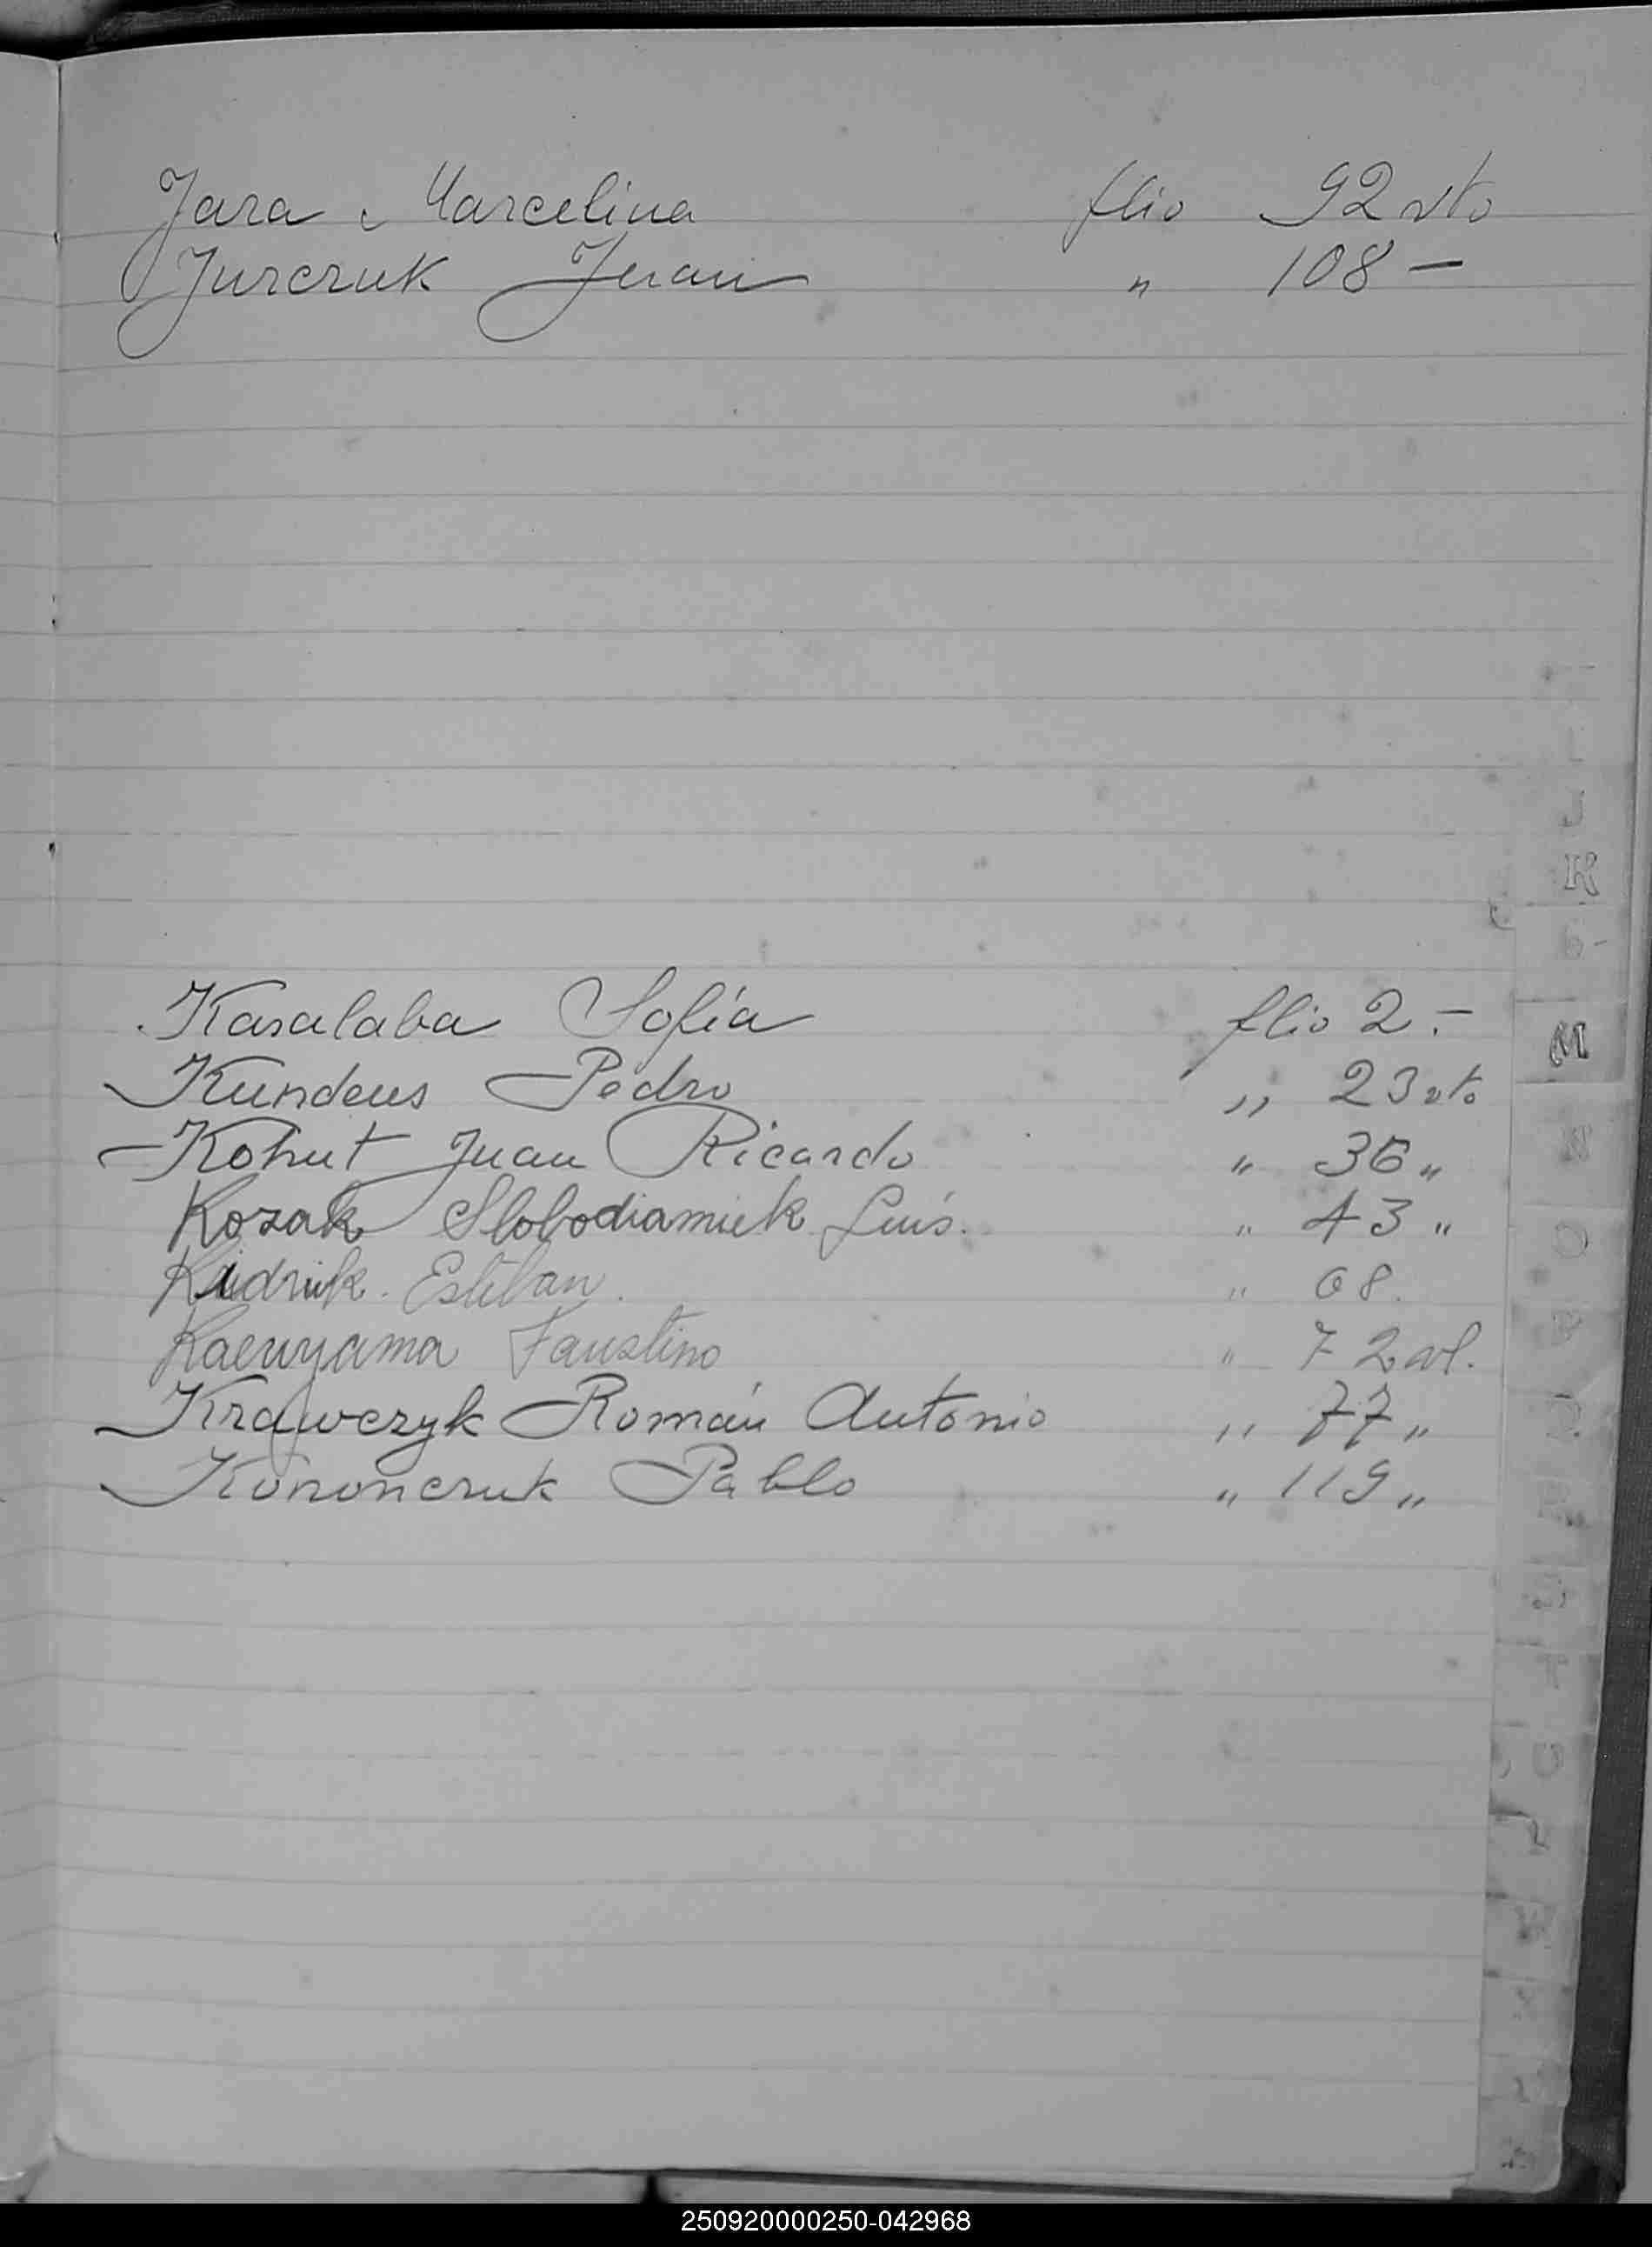 Jara Marcelina flio 92 vto
Jurczuk Juan " 108 —
J
K
M
Kasalaba Sofía flio 2.—
Kundeus Pedro " 23 vto
Kohut Juan Ricardo " 36 "
Kozak Slobodiamiuk Luis. " 43 "
Kidriuk. Esteban. " 68.
Kaeuyama Faustino " 72 vl.
Krawczyk Román Antonio " 77 "
Kononczuk Pablo " 119 "
250920000250-042968